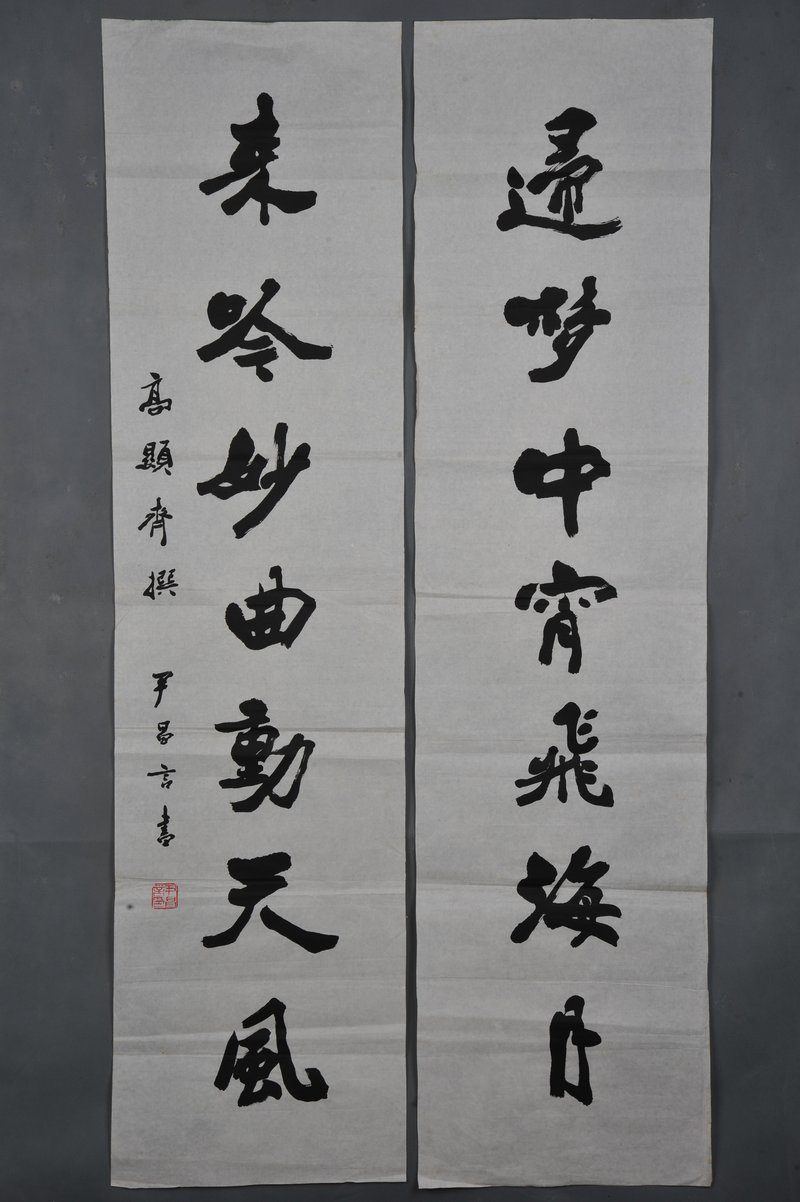 歸梦中宵飛海月
来吟妙曲動天風
高顯齊撰 尹昌言書